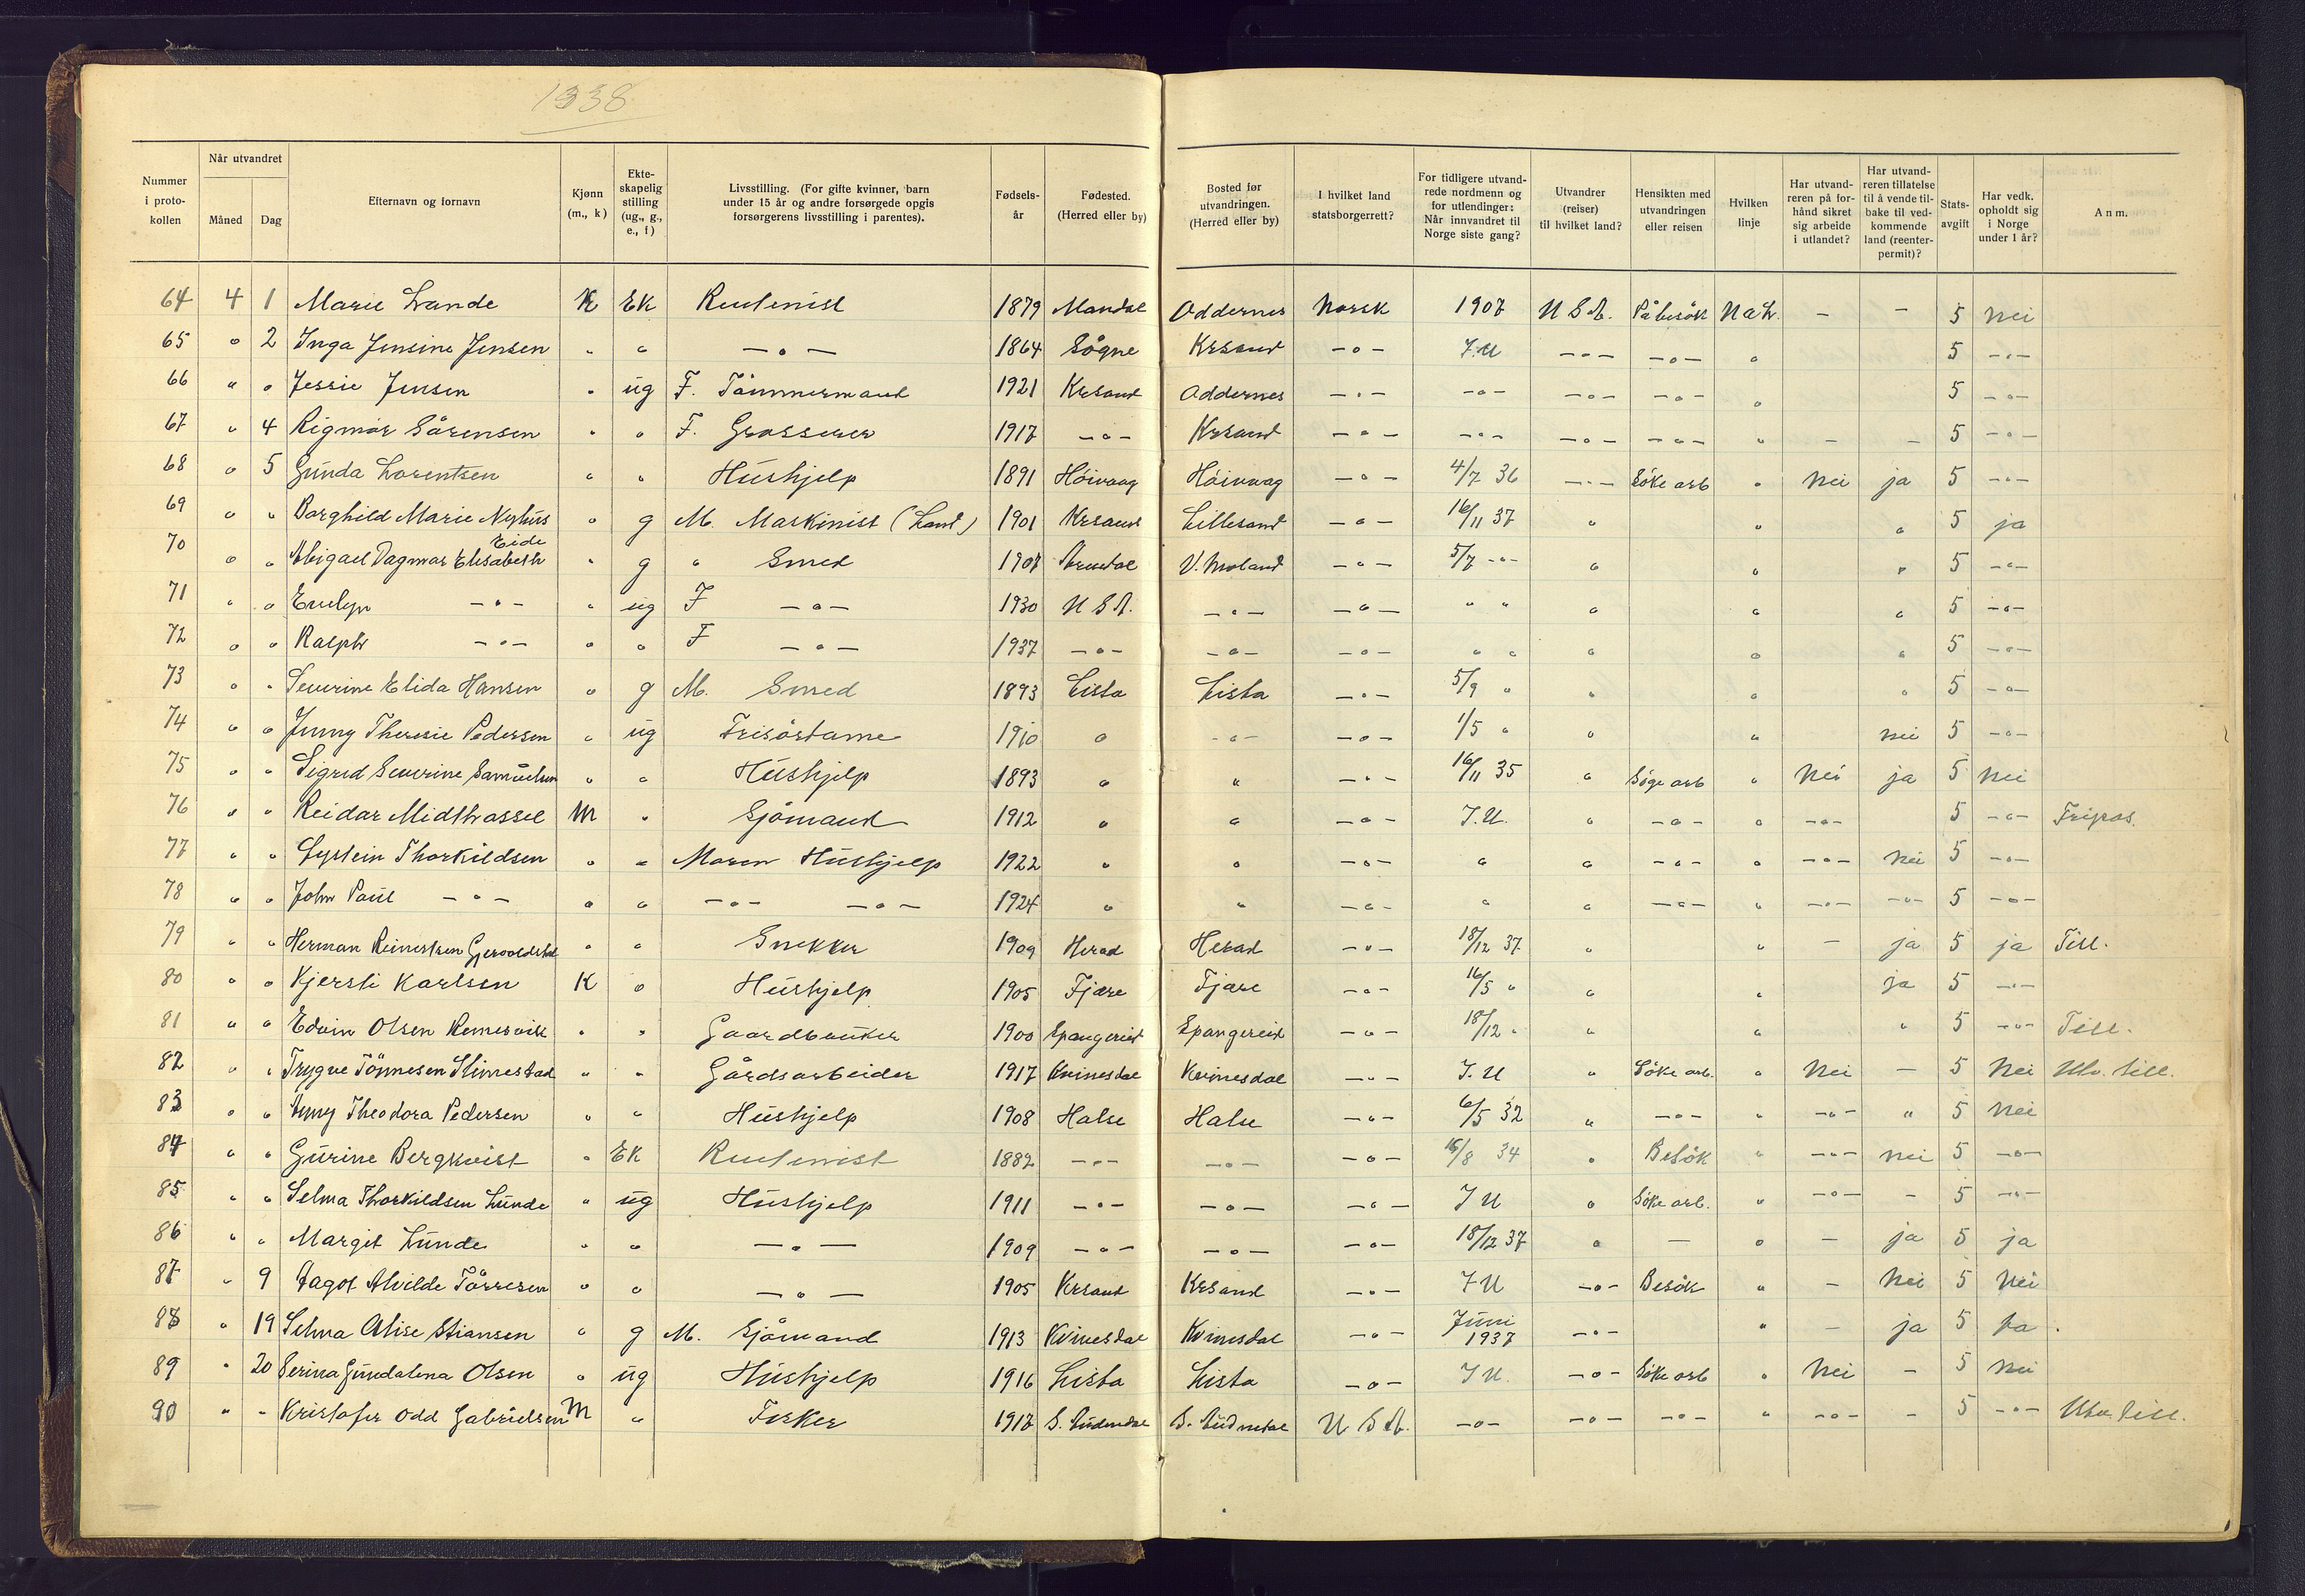 1938
Nummer i proto- kollen | Når utvandret Måned | Dag | Efternavn og fornavn | Kjønn (m., k) | Ekte- skapelig stilling (ug., g., e., f) | Livsstilling. (For gifte kvinner, barn under 15 år og andre forsørgede opgis forsørgerens livsstilling i parentes). | Fødsels- år | Fødested. (Herred eller by) | Bosted før utvandringen. (Herred eller by) | I hvilket land statsborgerrett? | For tidligere utvand- rede nordmenn og for utlendinger: Når innvandret til Norge siste gang? | Utvandrer (reiser) til hvilket land? | Hensikten med utvandringen eller reisen | Hvilken linje | Har utvand- reren på for- hånd sikret sig arbeide i utlandet? | Har utvand- reren tillatelse til å vende til- bake til ved- kommende land (reenter- permit)? | Stats- avgift | Har vedk. opholdt sig i Norge under 1 år? | Anm.
64 4 1 Marie Lande K Ek Rentenist 1879 Mandal Oddernes Norsk 1907 U S A. På besök N a L. - - 5 Nei
65 " 2 Inga Jensine Jensen " " -"- 1864 Sögne Krsand -"- I.U -"- -"- " 5 -"-
66 " " Jessie Jensen " ug F. Tömmermand 1921 Krsand Oddernes -"- -"- -"- -"- " 5 -"-
67 " 4 Rigmor Sörensen " " F. Grosserer 1917 -"- Krsand -"- -"- -"- -"- " - - 5 -"-
68 " 5 Gunda Lorentsen " " Hushjelp 1891 Höivaag Höivaag -"- 4/7 36 -"- Söke arb " Nei ja 5 -"-
69 " " Borghild Marie Nyhus " g M. Maskinist (Land) 1901 Krsand Lillesand -"- 16/11 37 " " " 5 ja
70 " " Abigael Dagmar Elisabeth Eide " g " Smed 1907 Arendal V. Moland -"- 5/7 -"- " " " 5 -"-
71 " " Evelyn -"- " ug F -"- 1930 U S A. -"- -"- " " " " " 5 -"-
72 " " Ralph -"- " " F -"- 1937 -"- -"- -"- " " " " " 5 -"-
73 " " Severine Elida Hansen " g M. Smed 1893 Lista Lista -"- 5/9 " " " " 5 -"-
74 " " Jenny Therese Pedersen " ug Frisördame 1910 " -"- -"- 1/5 " " " nei 5 -"-
75 " " Sigrid Severine Samuelsen " " Hushjelp 1893 " " -"- 16/11 35 " Söge arb " Nei ja 5 Nei
76 " " Reidar Midthassel M " Sjömand 1912 " " -"- I.U. " -"- " -"- 5 -"- Fripas.
77 " " Eystein Thorkildsen " " Moren Hushjelp 1922 " " -"- " " -"- " -"- nei 5 -"-
78 " " John Paul -"- " " -"- -"- 1924 " " -"- " " -"- " -"- -"- 5 -"-
79 " " Herman Reinertsen " " Snekker 1909 Herad Herad -"- 18/12 37 " " - ja 5 ja Till.
80 " " Kjersti Karlsen K " Hushjelp 1905 Fjære Fjære -"- 16/5 " " " ja 5 -"-
81 " " Edvin Olsen " " Gaardbruker 1900 Spangereid Spangereid -"- 18/12 " " " " 5 -"- Till.
82 " " Trygve Tönnesen Stimestad " " Gårdsarbeider 1917 Kvinesdal Kvinesdal -"- I.U " Söke arb. " Nei - 5 Nei Utv. till.
83 " " Anny Theodora Pedersen " " Hushjelp 1908 Halse Halse -"- 6/5 32 " -"- " -"- " 5 Nei
84 " " Gurine Bergkvist " Ek Rentenist 1882 -"- -"- -"- 16/8 34 " Besök " -"- nei 5 -"-
85 " " Selma Thorkildsen Lunde " ug Hushjelp 1911 -"- -"- -"- I U " Söke arb. " -"- - 5 -"-
86 " " Margit Lunde " " -"- 1909 -"- -"- -"- 18/12 37 " - " - ja 5 ja
87 " 9 Dagot Alvilde Törresen " " -"- 1905 Krsand Krsand -"- I U -"- Besök " - Nei 5 Nei
88 " 19 Selma Alise Stiansen " g M. Sjömand 1913 Kvinesdal Kvinesdal -"- Juni 1937 -"- " - ja 5 Ja.
89 " 20 Serina Gundalena Olsen " ug Hushjelp 1916 Lista Lista -"- I U. -"- Söke arb " Nei - 5 Nei
90 " " Kristofer Odd Gabrielsen M " Fisker 1917 S. Audnedal S. Audnedal U S A. -"- -"- -"- " -"- - 5 -"- Utv. till.